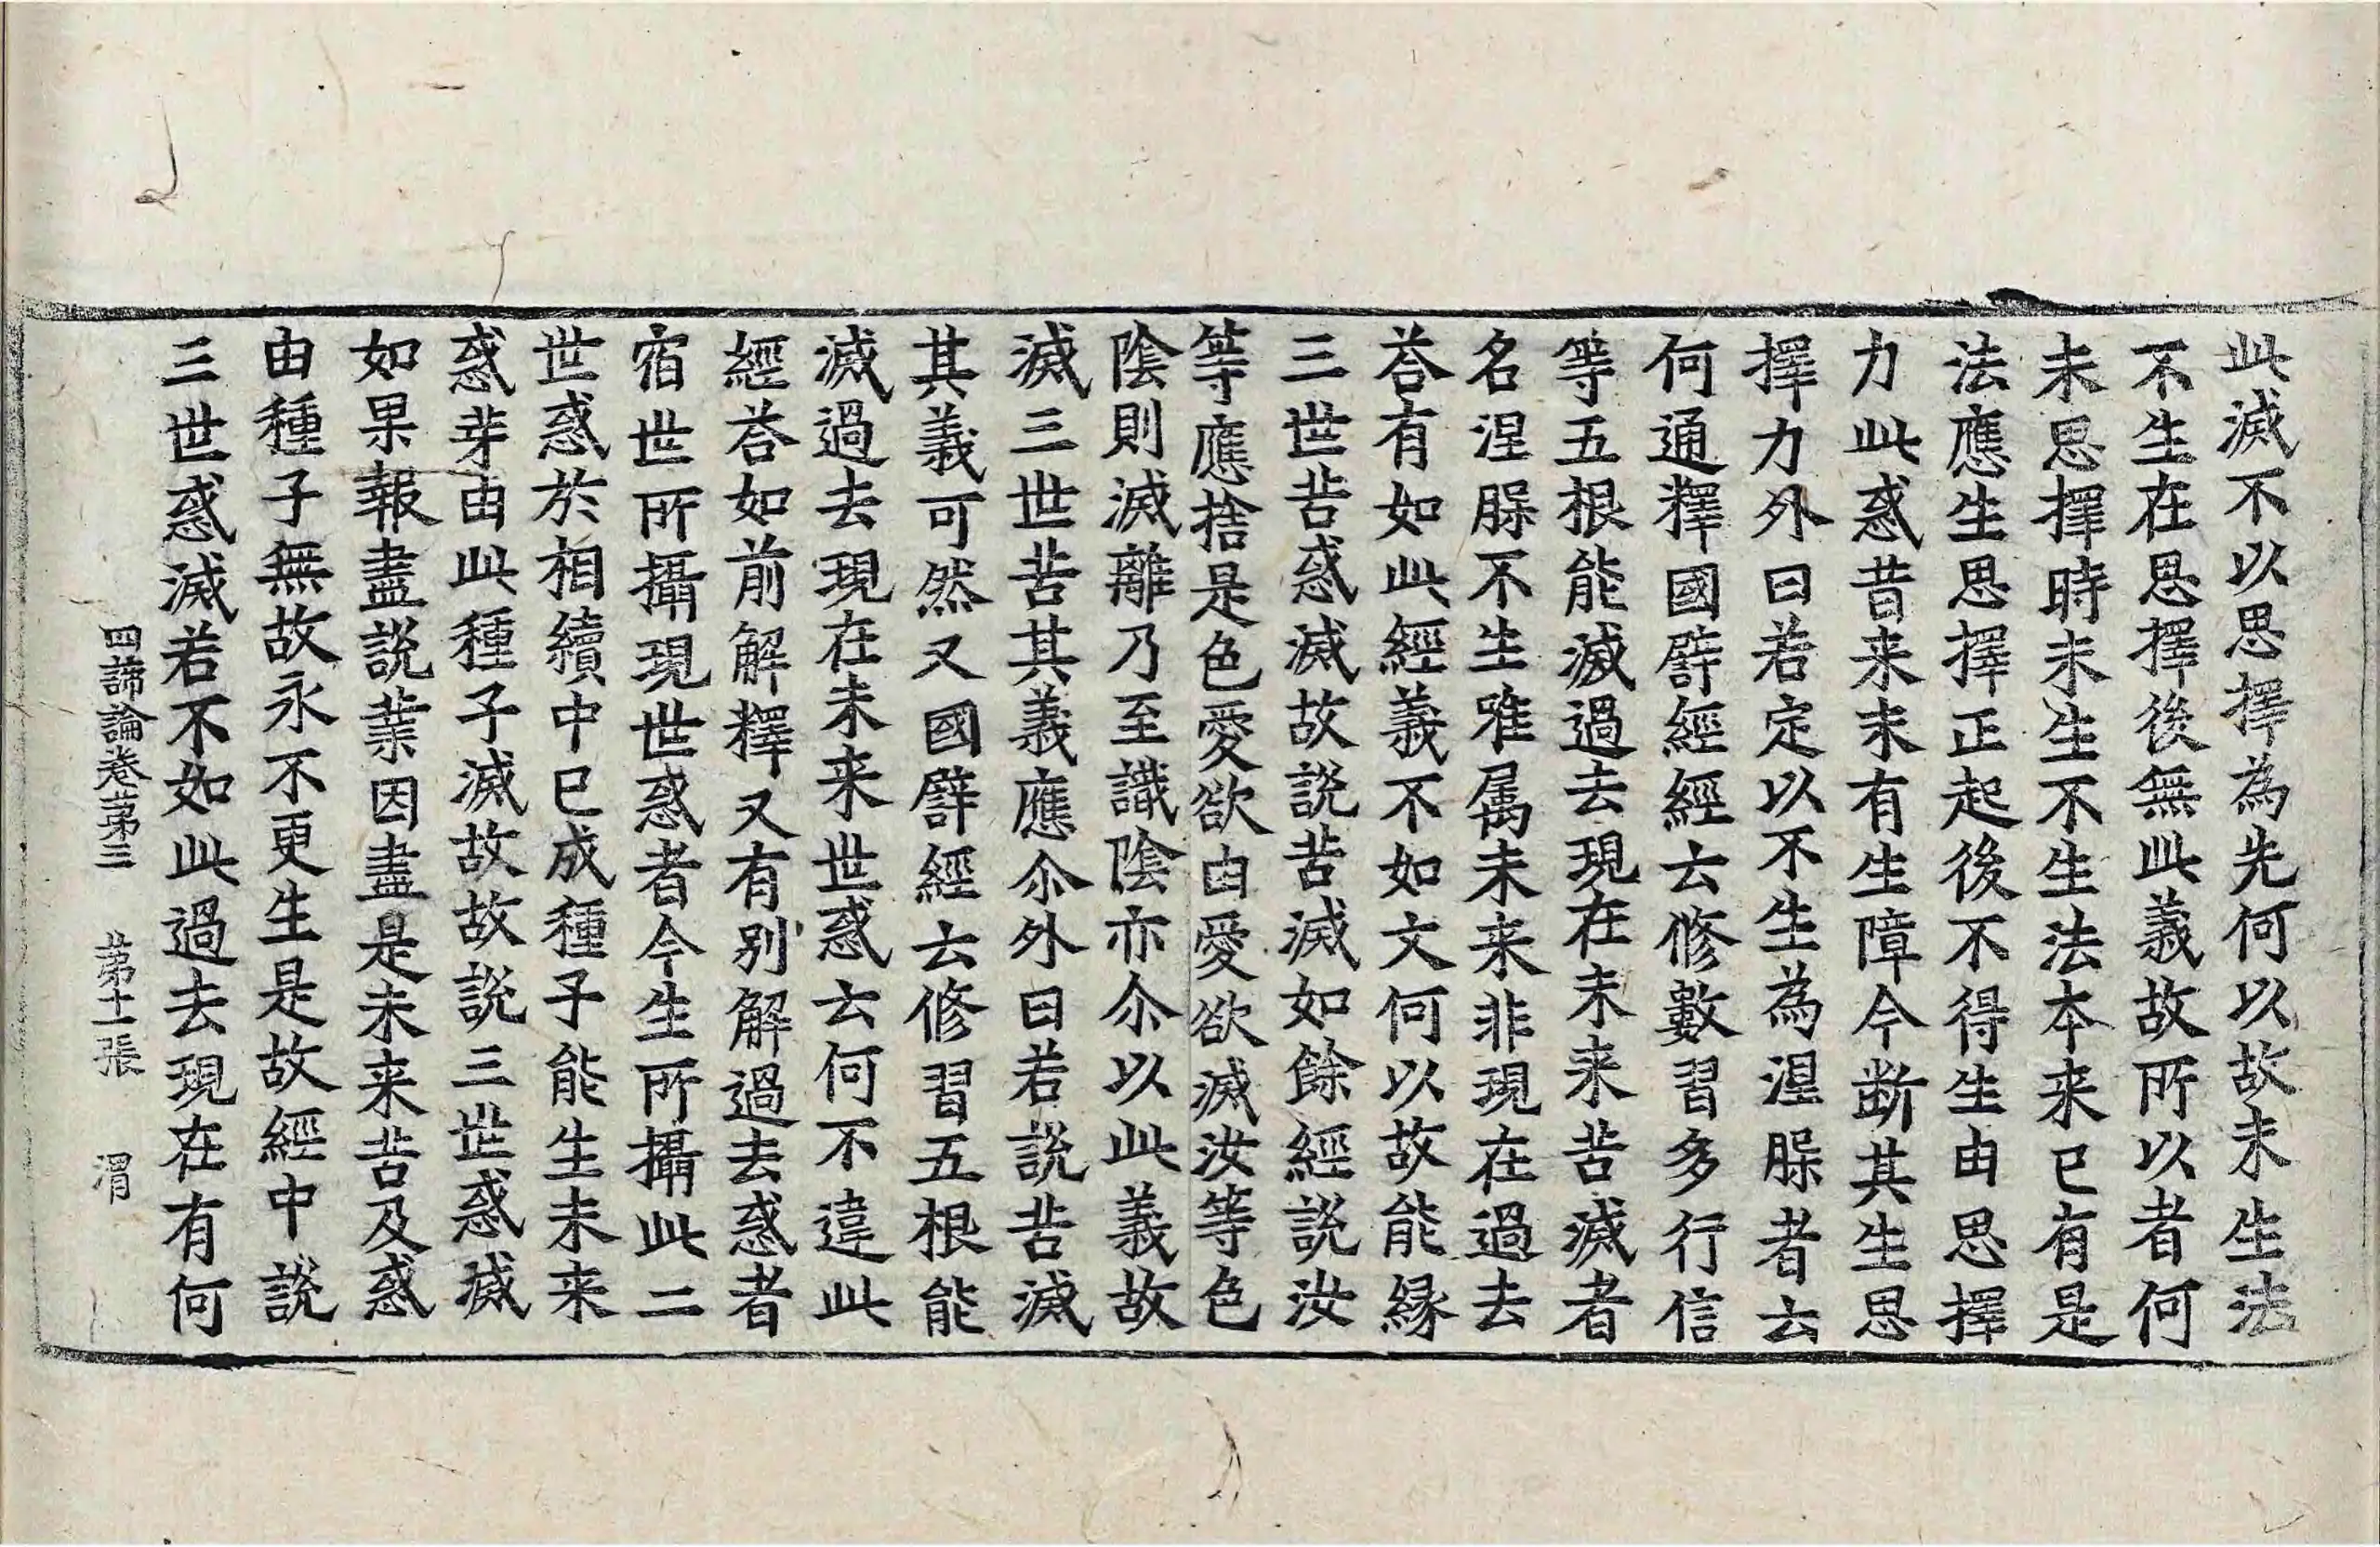 此滅不以思擇為先何以故未生法
不生在思擇後無此義故所以者何
未思擇時未生不生法本来已有是
法應生思擇正起後不得生由思擇
力此惑昔来未有生障今断其生思
擇力外曰若定以不生為涅槃者云
何通釋國譬經經云修數習多行信
等五根能滅過去現在未来苦滅者
名涅槃不生唯属未来非現在過去
荅有如此經義不如文何以故能縁
三世苦惑滅故說苦滅如餘經說汝
等應捨是色愛欲由愛欲滅汝等色
陰則滅離乃至識陰亦尒以此義故
滅三世苦其義應尒外曰若說苦滅
其義可然又國譬經云修習五根能
滅過去現在未来世惑云何不違此
經荅如前解釋又有别解過去惑者
宿世所攝現世惑者今生所攝此二
世惑於相續中已成種子能生未来
惑芽由此種子滅故故說三世惑滅
如果報盡說業因盡是未来苦及惑
由種子無故永不更生是故經中說
三世惑滅若不如此過去現在有何
四諦論卷苐三 苐十一張 渭